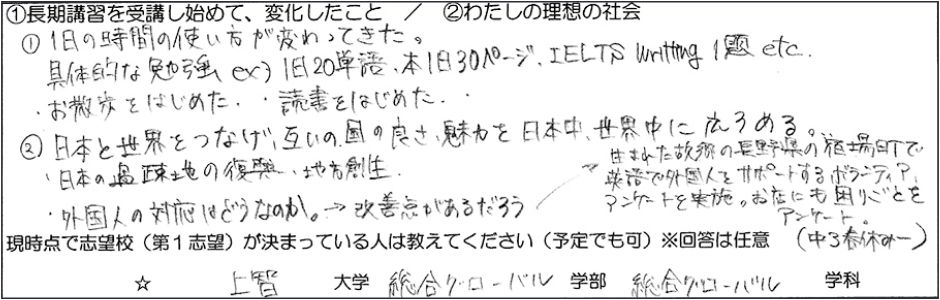 ①長期講習を受講し始めて、変化したこと ／ ②わたしの理想の社会
① 1日の時間の使い方が変わってきた。
具体的な勉強 ex) 1日20単語、本1日30ページ、IELTS Writting 1題 etc.
・お散歩をはじめた。・読書をはじめた。
② 日本と世界をつなげ、互いの国の良さ、魅力を日本中、世界中に広める。
・日本の過疎地の復興・地方創生
・外国人の対応はどうなのか。→ 改善点があるだろう
生まれた故郷の長野県の宿場町で
英語で外国人をサポートするボランティア、
アンケートを実施。お店にも困りごとを
アンケート。
(中3春休み〜)
現時点で志望校（第１志望）が決まっている人は教えてください（予定でも可）※回答は任意
☆ 上智 大学 総合グローバル 学部 総合グローバル 学科